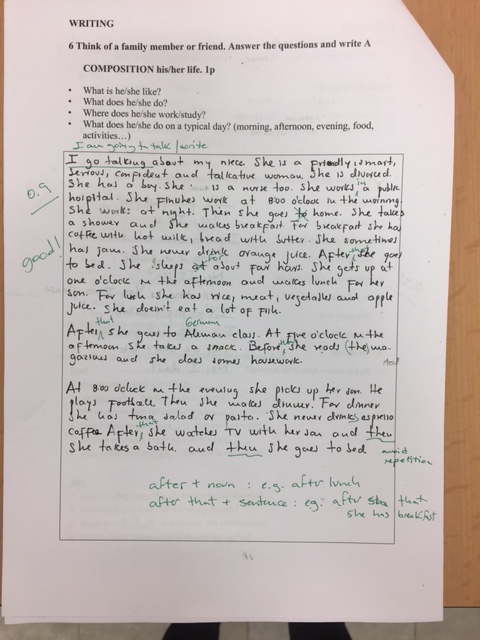 WRITING
6 Think of a family member or friend. Answer the questions and write A
COMPOSITION his/her life. 1p
• What is he/she like?
• What does he/she do?
• Where does he/she work/study?
• What does he/she do on a typical day? (morning, afternoon, evening, food,
activities…)
I am going to talk/write
I go talking about my niece. She is a friendly, smart,
serious, confident and talkative woman. She is divorced.
She has a boy. She is a nurse too. She works in a public
hospital. She finishes work at 8:00 o'clock in the morning.
0.9
She works at night. Then she goes to home. She takes
a shower and she makes breakfast. For breakfast she has
coffee with hot milk, bread with butter. She sometimes
has jam. She never drink orange juice. After that she goes
good!
to bed. She sleeps at for about four hours. She gets up at
one o'clock in the afternoon and makes lunch for her
son. For lunch she had rice, meat, vegetables and apple
juice. She doesn't eat a lot of fish.
that German
After she goes to Aleman class. At five o'clock in the
afternoon she takes a snack. Before she reads (the) ma-
gazines and she does somes housework.
At 8:00 o'clock in the evening she picks up her son. He
plays football. Then she makes dinner. For dinner
she has tuna, salad or pasta. She never drinks espresso
coffee. After that she watches TV with her son and then
she takes a bath. and then she goes to bed
avoid
repetition
after + noun : e.g. after lunch
after that + sentence : eg: after that
she has breakfast